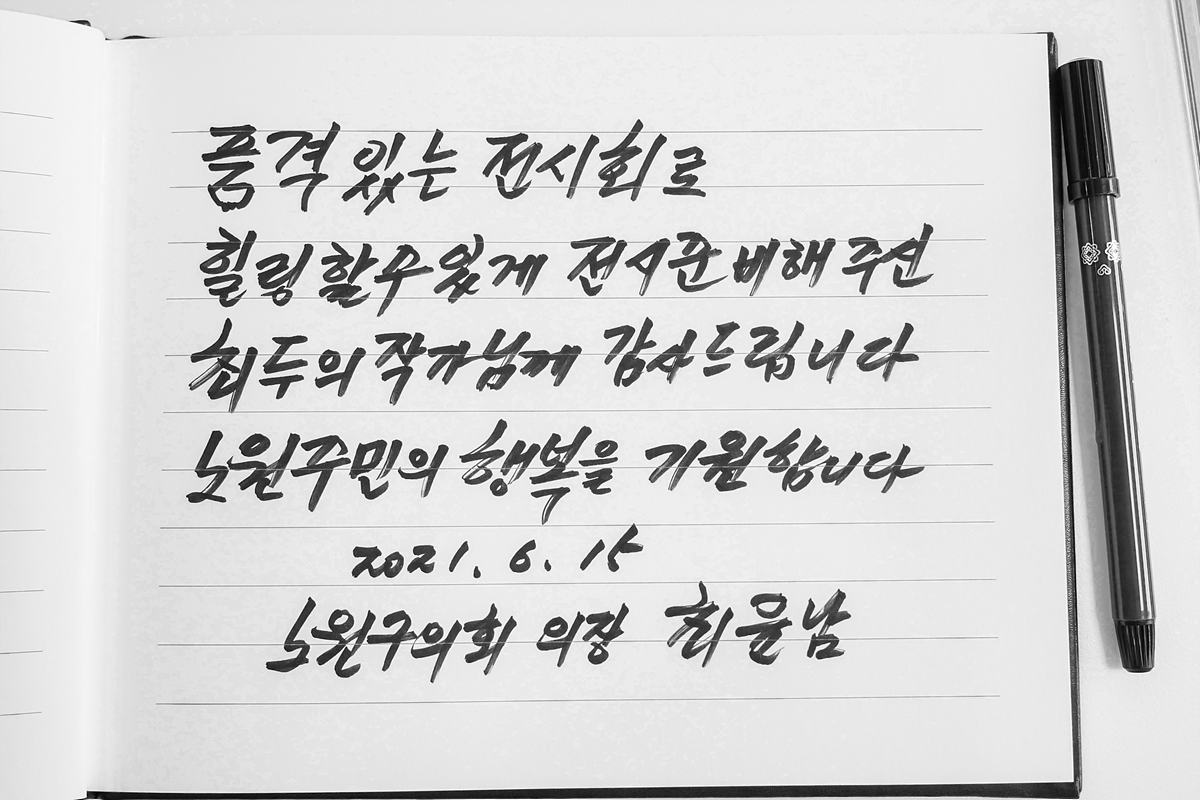 품격 있는 전시회로
힐링 할수 있게 전시준비해 주신
최두의 작가님께 감사드립니다
노원주민의 행복을 기원합니다
2021. 6. 15
노원구의회 의장 최윤남